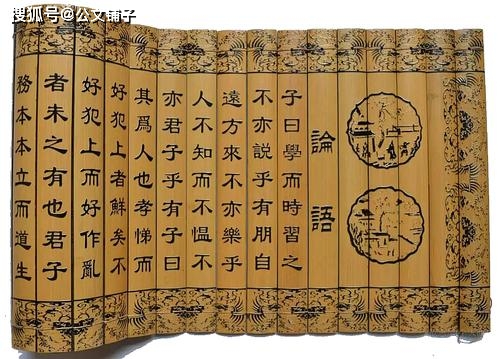 搜狐号@公文铺子
論語
子曰學而時習之
不亦說乎有朋自
遠方來不亦樂乎
人不知而不慍不
亦君子乎有子曰
其爲人也孝悌而
好犯上者鮮矣不
好犯上而好作亂
者未之有也君子
務本本立而道生